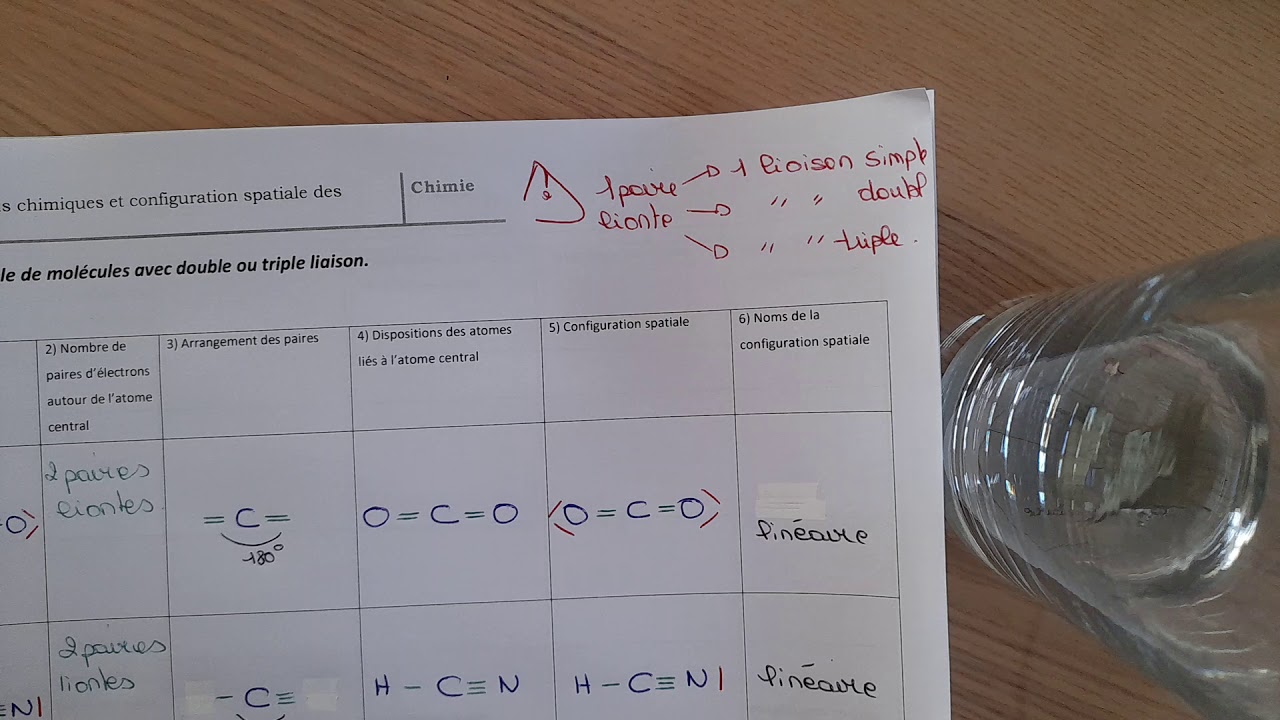 s chimiques et configuration spatiale des
Chimie
1 paire → 1 liaison simple
liante → " " doubl
→ " " triple.
le de molécules avec double ou triple liaison.
2) Nombre de
paires d'électrons
autour de l'atome
central
3) Arrangement des paires
4) Dispositions des atomes
liés à l'atome central
5) Configuration spatiale
6) Noms de la
configuration spatiale
O
2 paires
liantes
= C =
180°
O = C = O
O = C = O
linéaire
≡ N|
2 paires
liantes
– C ≡
H – C ≡ N
H – C ≡ N|
linéaire